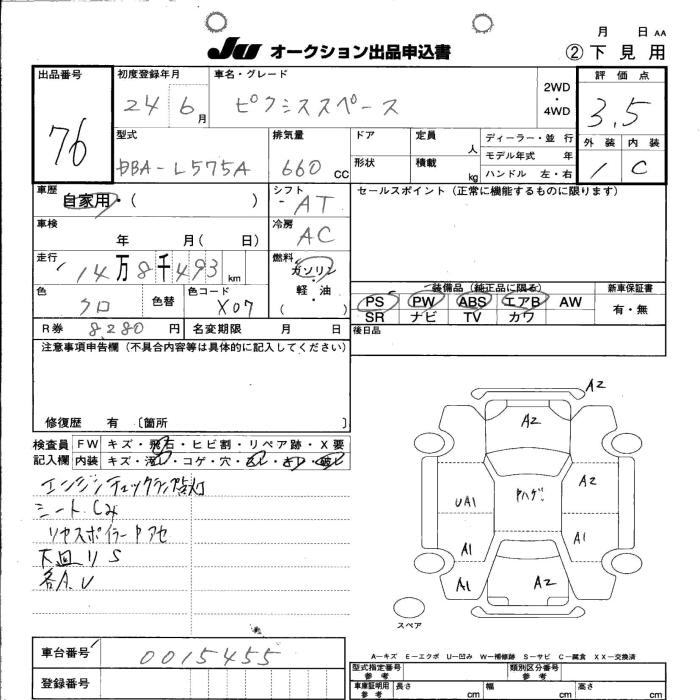 月 日 AA
JU オークション出品申込書 ②下見用
出品番号 初度登録年月 車名・グレード 2WD・4WD 評価点
76 24 6月 ピクシススペース 3.5
型式 排気量 ドア 定員 人 ディーラー・並行 外装 内装
DBA-L575A 660 CC 形状 積載 kg モデル年式 年 1 C
ハンドル 左・右
車歴 シフト セールスポイント（正常に機能するものに限ります）
自家用・( ) AT
車検 冷房
年 月( 日) AC
走行 燃料
14万8千493km ガソリン
軽・油
( )
色 色替 色コード
クロ X07
装備品（純正品に限る） 新車保証書
PS PW ABS エアB AW 有・無
SR ナビ TV カワ
R券 8280円 名変期限 月 日 後日品
注意事項申告欄（不具合内容等は具体的に記入してください）
修復歴 有 〔箇所 〕
検査員 FW キズ・飛石・ヒビ割・リペア跡・X要
記入欄 内装 キズ・汚レ・コゲ・穴
エンジンチェックランプ点灯
シート.Cみ
リヤスポイラー アセ
下回り S
各A.U
A2
A2
UA1 Pハゲ! A2
A1 A1
A1 A2
スペア
A－キズ E－エクボ U－凹み W－補修跡 S－サビ C－腐食 XX－交換済
車台番号 0015455
登録番号
型式指定番号 参考 類別区分番号 参考
車庫証明用 参考 長さ cm 幅 cm 高さ cm